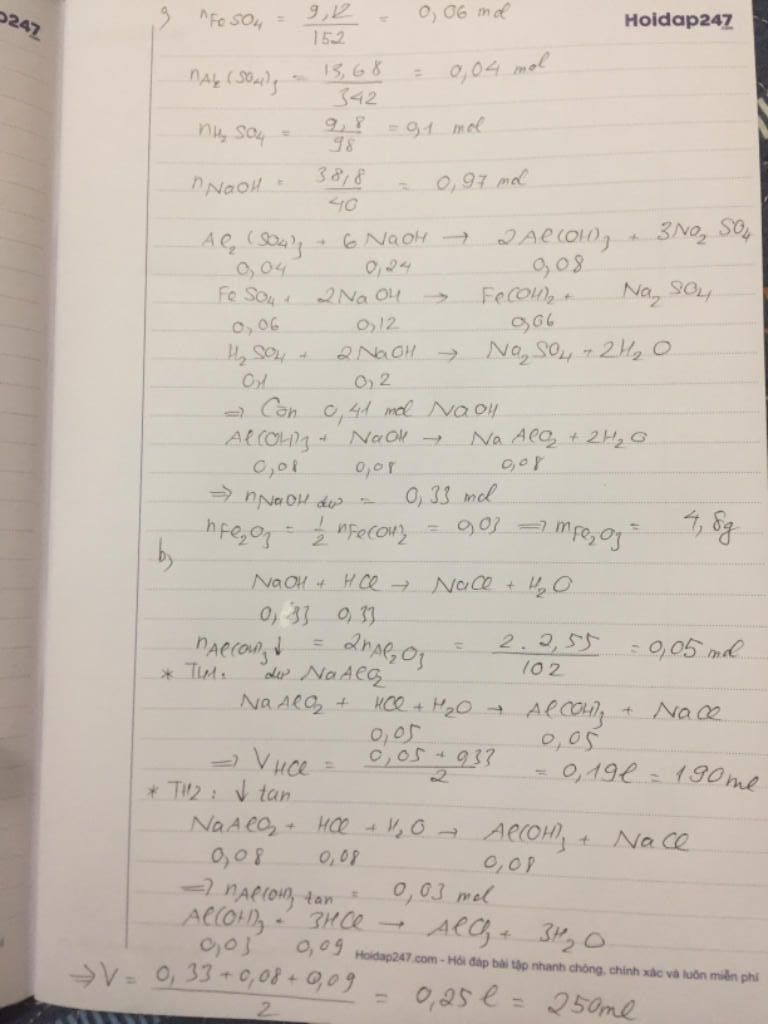 p247
Hoidap247
a) nFeSO4 = 9,12/152 = 0,06 mol
nAl2(SO4)3 = 13,68/342 = 0,04 mol
nH2SO4 = 9,8/98 = 0,1 mol
nNaOH = 38,8/40 = 0,97 mol
Al2(SO4)3 + 6NaOH → 2Al(OH)3 + 3Na2SO4
0,04 0,24 0,08
FeSO4 + 2NaOH → Fe(OH)2 + Na2SO4
0,06 0,12 0,06
H2SO4 + 2NaOH → Na2SO4 + 2H2O
0,1 0,2
=> Còn 0,41 mol NaOH
Al(OH)3 + NaOH → NaAlO2 + 2H2O
0,08 0,08 0,08
=> nNaOH dư = 0,33 mol
nFe2O3 = 1/2 nFe(OH)2 = 0,03 => mFe2O3 = 4,8g
b)
NaOH + HCl → NaCl + H2O
0,33 0,33
nAl(OH)3↓ = 2nAl2O3 = 2.2,55/102 = 0,05 mol
* TH1: dư NaAlO2
NaAlO2 + HCl + H2O → Al(OH)3 + NaCl
0,05 0,05
=> VHCl = 0,05 + 0,33/2 = 0,19l = 190ml
* TH2: ↓ tan
NaAlO2 + HCl + H2O → Al(OH)3 + NaCl
0,08 0,08 0,08
=> nAl(OH)3 tan = 0,03 mol
Al(OH)3 + 3HCl → AlCl3 + 3H2O
0,03 0,09
Hoidap247.com - Hỏi đáp bài tập nhanh chóng, chính xác và luôn miễn phí
=> V = 0,33 + 0,08 + 0,09/2 = 0,25l = 250ml